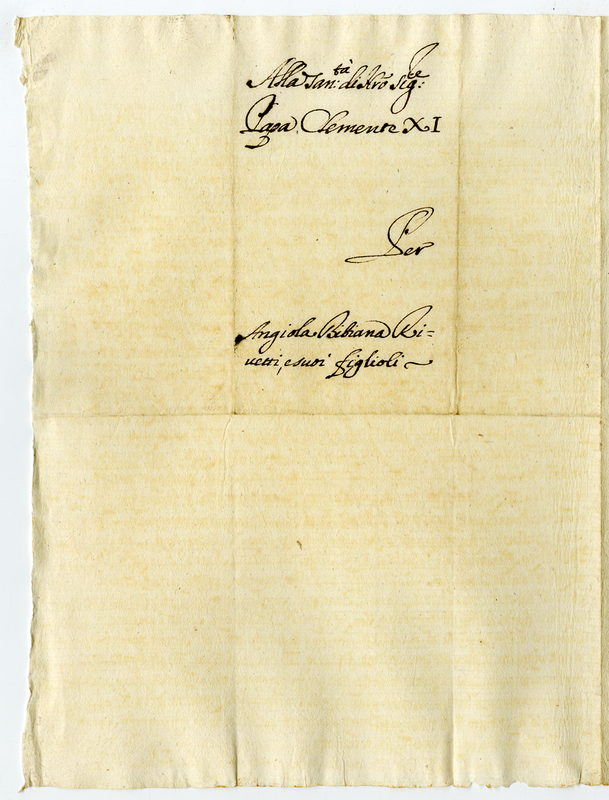 Alla San:tà di Nrõ Sig:re
Papa Clemente XI
Per
Angiola Bibiana Ri=
uetti, e suoi figlioli